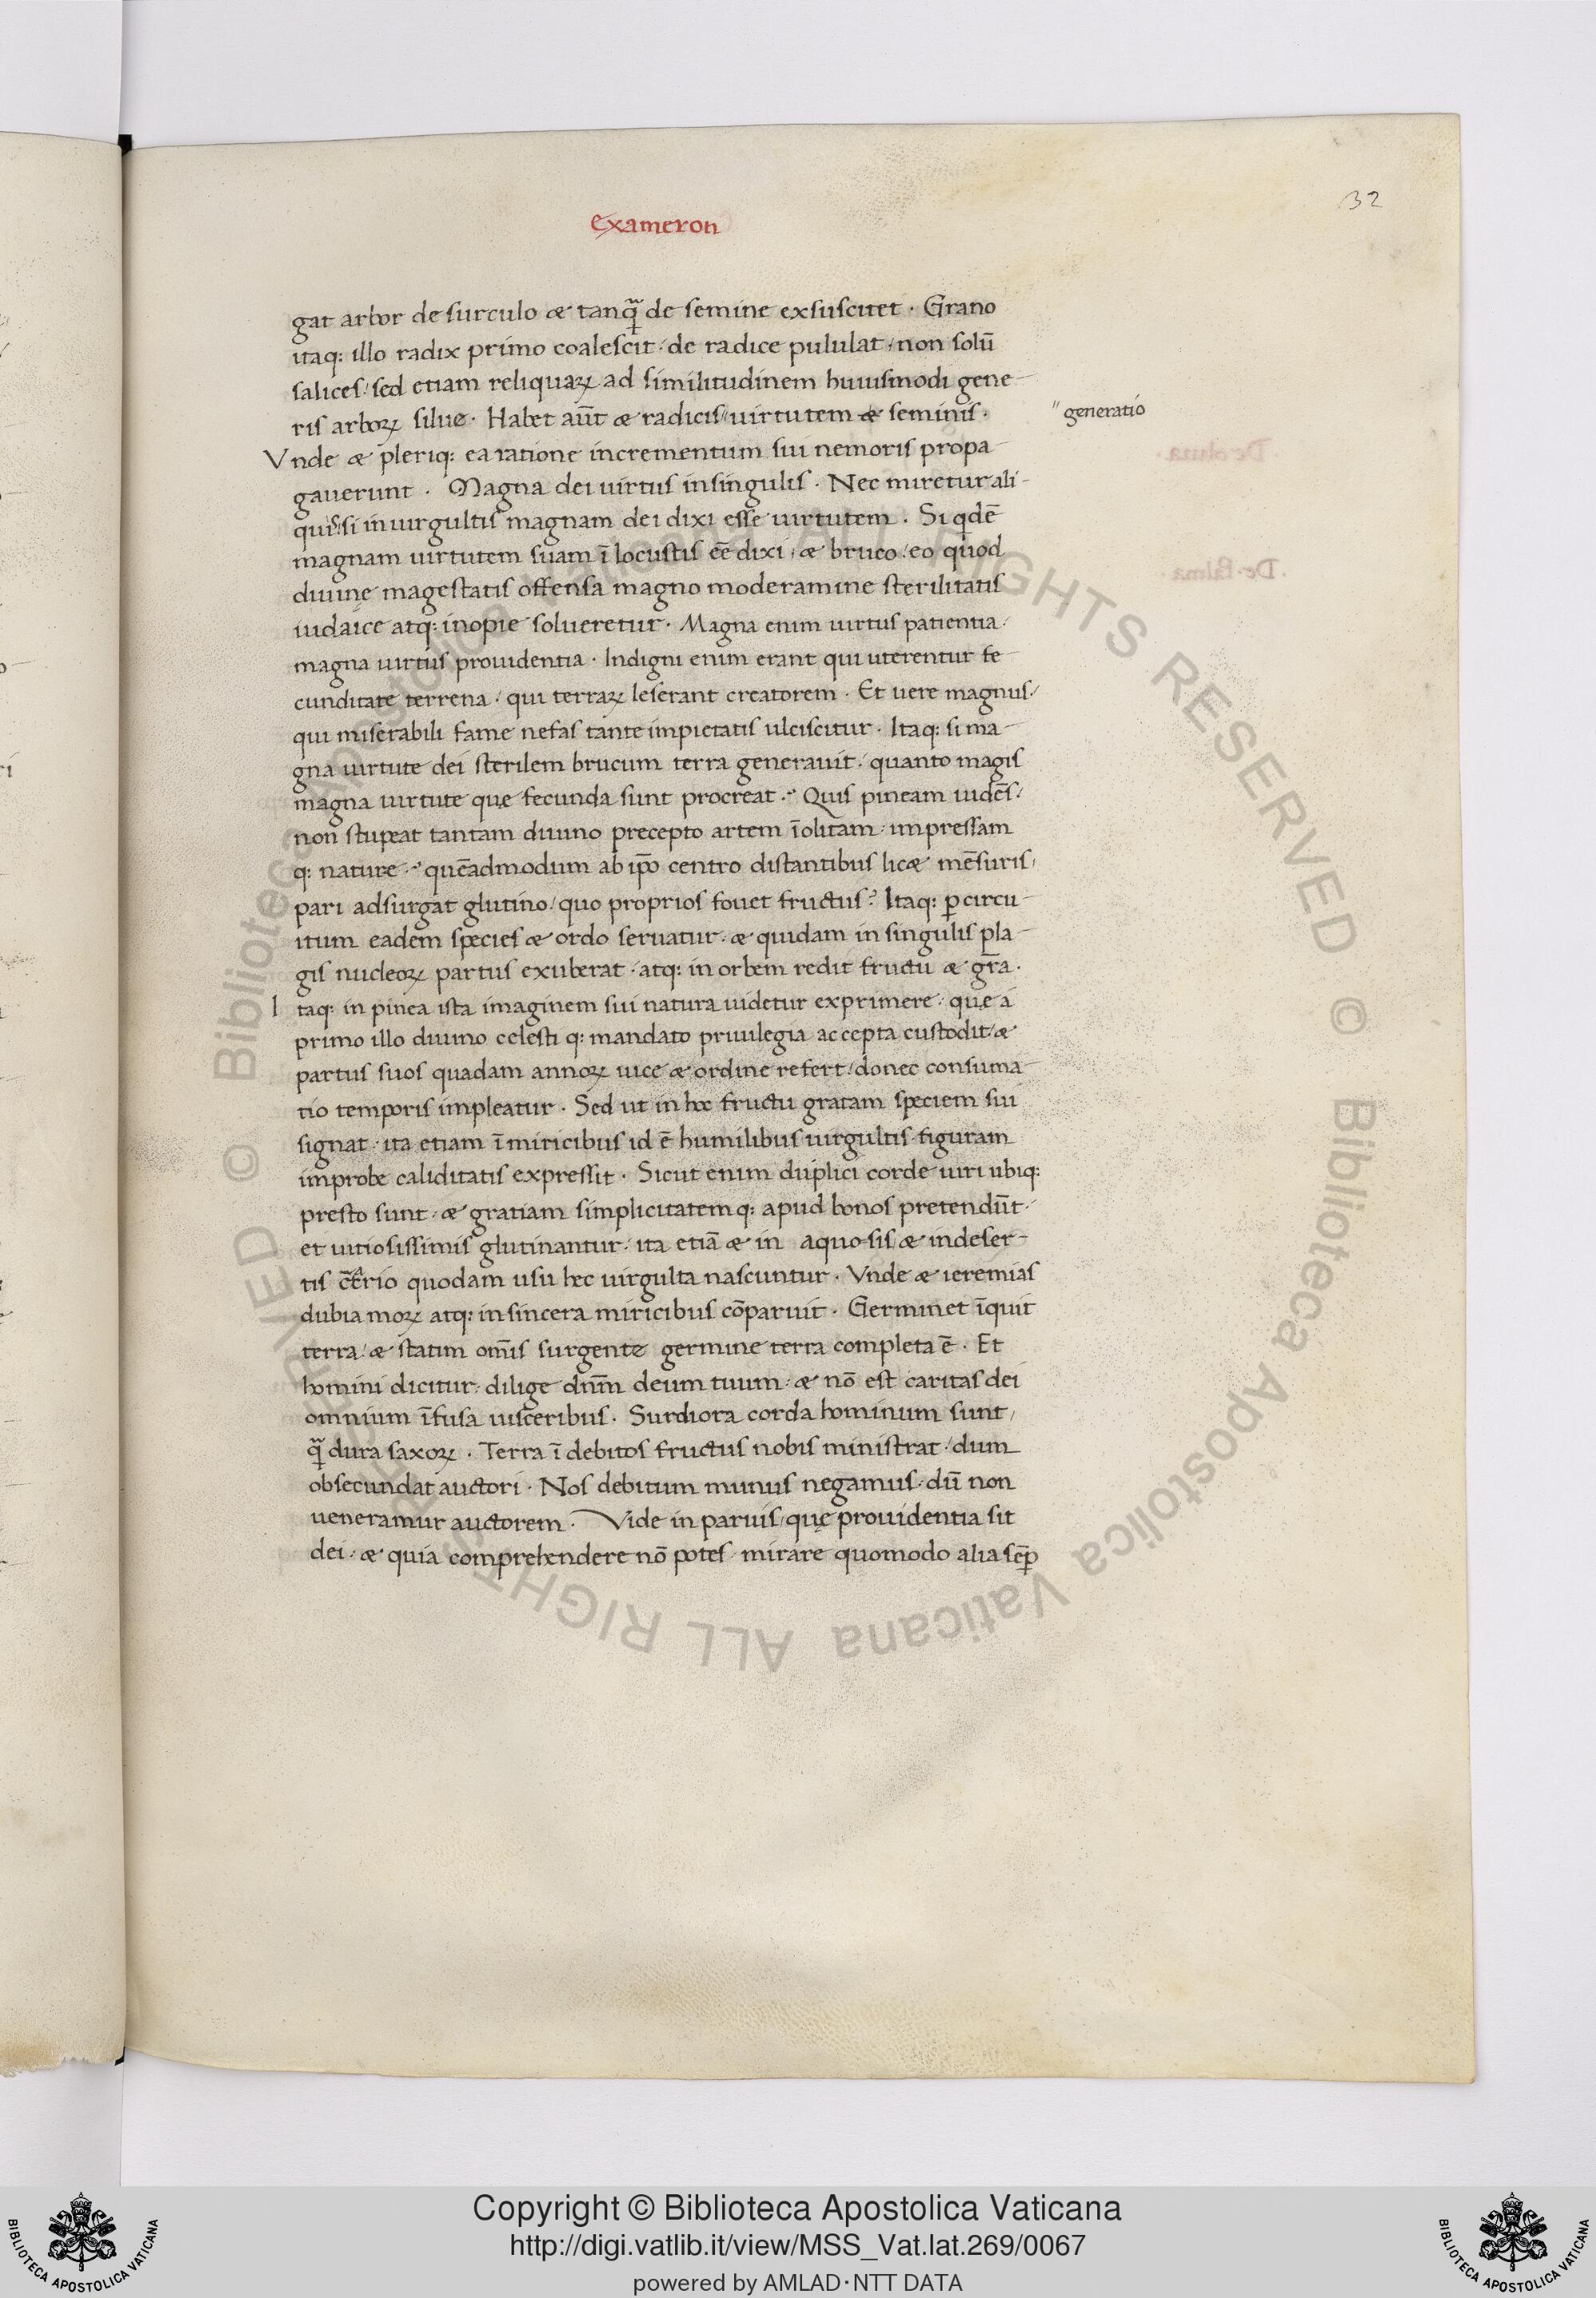 32
Exameron
gat arbor de surculo & tanq̃ de semine exsuscitet · Grano
itaq: illo radix primo coalescit / de radice pululat / non solū
salices / sed etiam reliquaꝝ ad similitudinem huiusmodi gene-
ris arboꝝ silue · Habet aūt & radicis " uirtutem & seminis ·
" generatio
Vnde & pleriq: ea ratione incrementum sui nemoris propa-
gauerunt · Magna dei uirtus in singulis · Nec miretur ali-
quis / si in uirgultis magnam dei dixi esse uirtutem · Si qdē
magnam uirtutem suam ī locustis eē dixi / & bruco / eo quod
diuine magestatis offensa magno moderamine sterilitatis
iudaice atq: inopie solueretur · Magna enim uirtus patientia /
magna uirtus prouidentia · Indigni enim erant qui uterentur fe-
cunditate terrena / qui terraꝝ leserant creatorem · Et uere magnus /
qui miserabili fame nefas tante impietatis ulciscitur · Itaq: si ma-
gna uirtute dei sterilem brucum terra generauit / quanto magis
magna uirtute quę fecunda sunt procreat ·? Quis pineam uidēs /
non stupeat tantam diuino precepto artem īolitam / impressam
q: nature ·? quēadmodum ab ip̄o centro distantibus lic& mēsuris /
pari adsurgat glutino / quo proprios fouet fructus? Itaq: ꝑ circu-
itum eadem species & ordo seruatur / & quidam in singulis pla-
gis nucleoꝝ partus exuberat / atq: in orbem redit fructu & gr̄a ·
I taq: in pinea ista imaginem sui natura uidetur exprimere / quę á
primo illo diuino celesti q: mandato priuilegia accepta custodit / &
partus suos quadam annoꝝ uice & ordine refert / donec consuma-
tio temporis impleatur · Sed ut in hoc fructu gratam speciem sui
signat / ita etiam ī miricibus id ē humilibus uirgultis figuram
improbe caliditatis expressit · Sicut enim duplici corde uiri ubiq:
presto sunt / & gratiam simplicitatem q: apud bonos pretendūt /
et uitiosissimis glutinantur / ita etiā & in aquosis & in deser-
tis cṫrario quodam usu hęc uirgulta nascuntur · Vnde & ieremias
dubia moꝝ atq: insincera miricibus cōparuit · Germinet īquit
terra / & statim om̄is surgente germine terra completa ē · Et
homini dicitur / dilige dn̄m deum tuum / & nō est caritas dei
omnium īfusa uisceribus · Surdiora corda hominum sunt /
q̃ dura saxoꝝ · Terra ī debitos fructus nobis ministrat / dum
obsecundat auctori · Nos debitum munus negamus / dū non
ueneramur auctorem · Vide in paruis / quę prouidentia sit
dei / & quia comprehendere nō potes / mirare quomodo alia sēꝑ
Copyright © Biblioteca Apostolica Vaticana
http://digi.vatlib.it/view/MSS_Vat.lat.269/0067
powered by AMLAD·NTT DATA
BIBLIOTECA APOSTOLICA VATICANA
BIBLIOTECA APOSTOLICA VATICANA